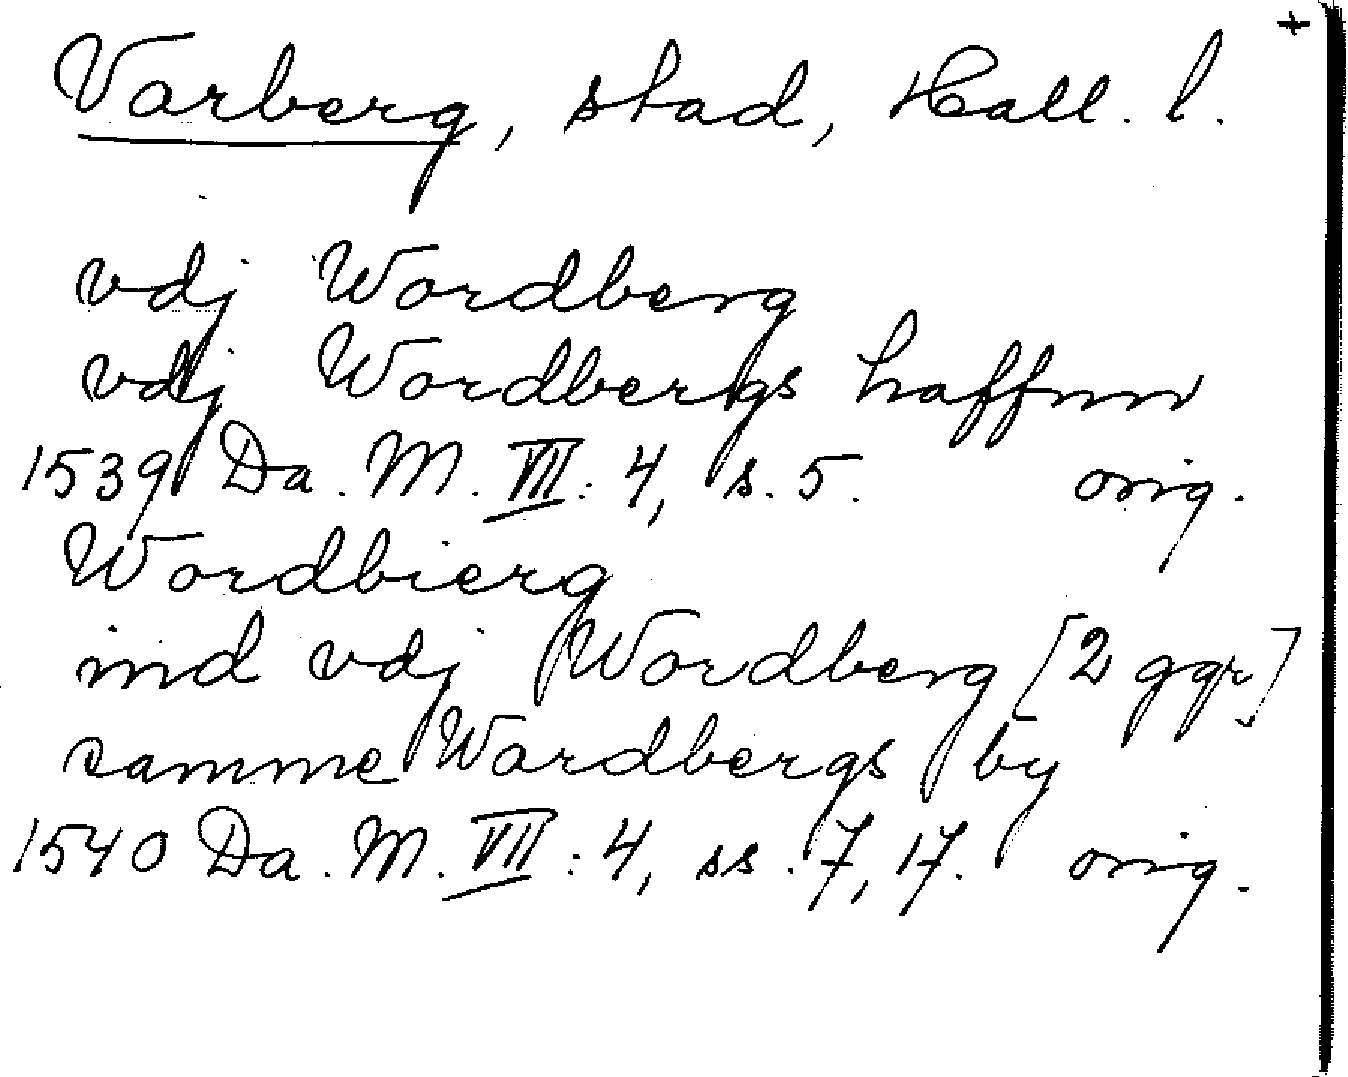 +
Varberg, stad, Hall. l.
vdj Wordberg
vdj Wordbergs haffnn
1539 Da. M. VII: 4, s. 5. orig.
Wordbierg
ind vdj Wordberg [2 ggr]
samme Wardbergs by
1540 Da. M. VII: 4, ss. 7, 17. orig.